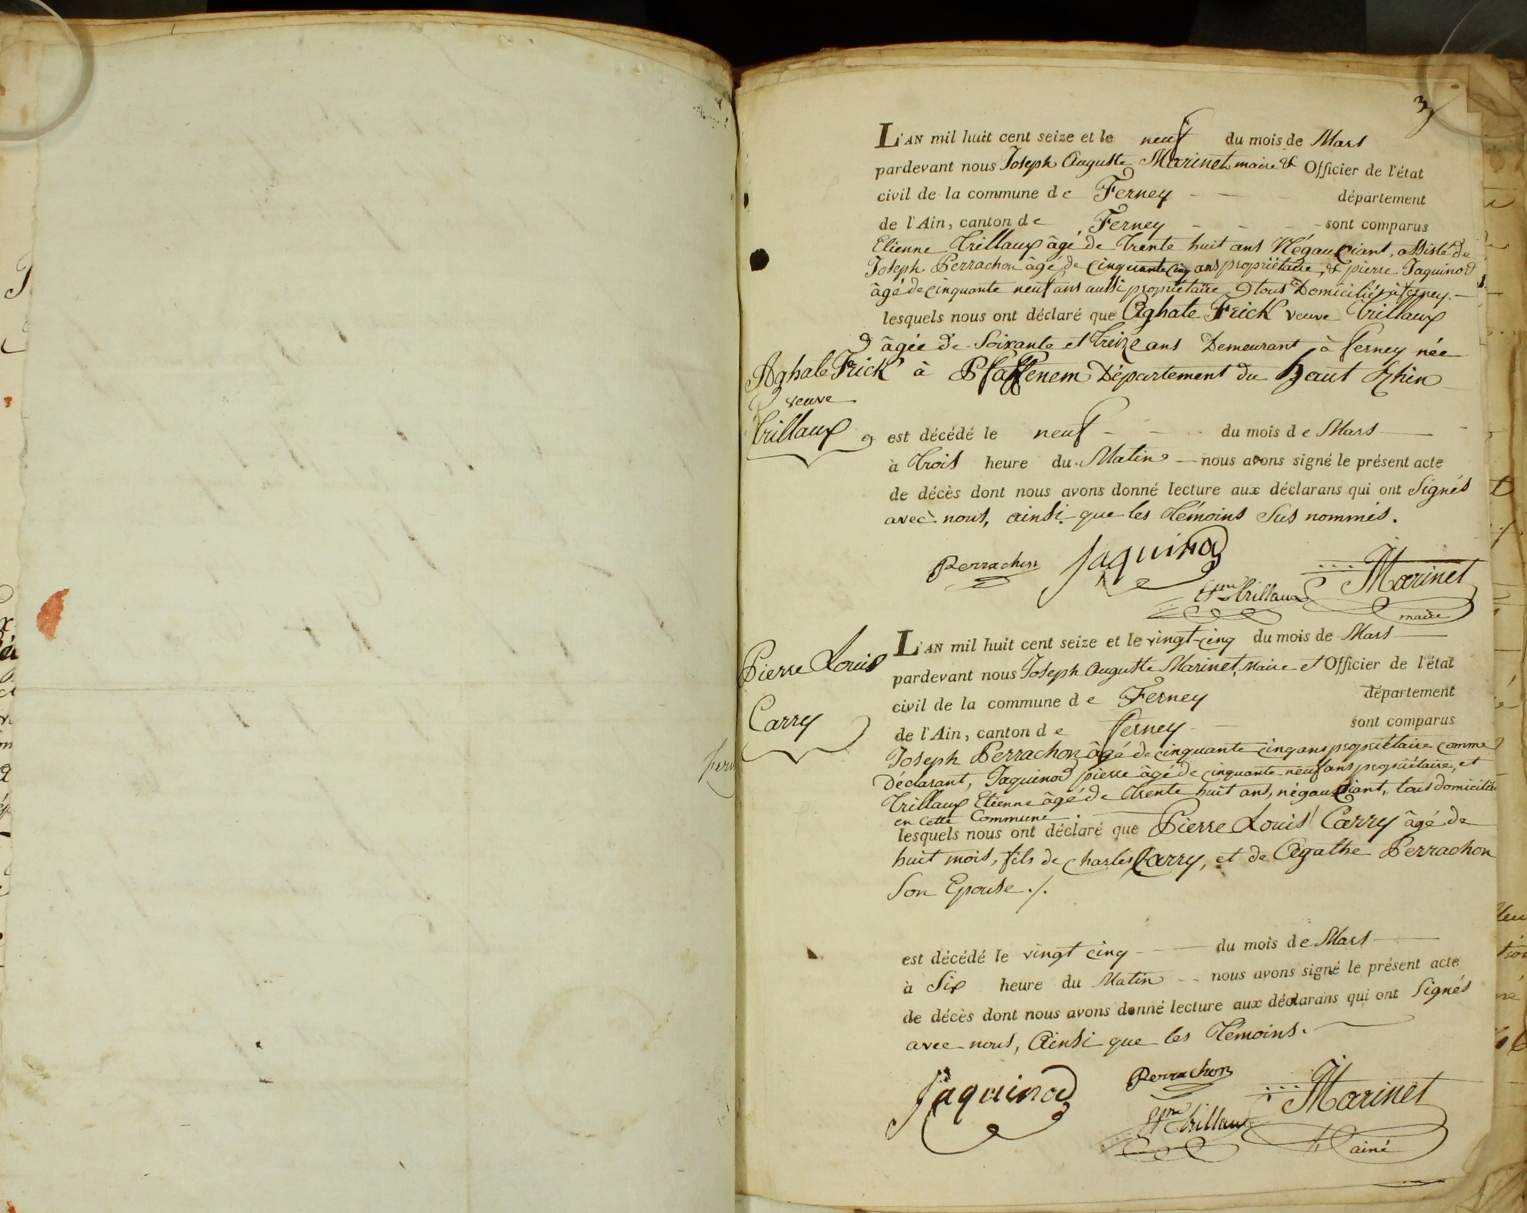 3
L'AN mil huit cent seize et le neuf du mois de Mars
pardevant nous Joseph Auguste Marinet maire & Officier de l'état
civil de la commune de Ferney département
de l'Ain, canton de Ferney sont comparus
Etienne Trillaux âgé de trente huit ans Négauciant, assisté de
Joseph Perrachon âgé de cinquante cinq ans propriétaire, & pierre Jaquinod
âgé de cinquante neuf ans aussi propriétaire tous Domiciliés à ferney.
lesquels nous ont déclaré que Aghate Frick veuve Trillaux
âgée de Soixante et treize ans Demeurant à ferney née
à Pfaffenem Département du haut Rhin
Aghate Frick
veuve
Trillaux
est décédé le neuf du mois de Mars
à trois heure du Matin nous avons signé le présent acte
de décès dont nous avons donné lecture aux déclarans qui ont Signés
avec nous, ainsi que les témoins sus nommés.
Perrachon Jaquinod
Trillaux Marinet
maire
L'AN mil huit cent seize et le vingt cinq du mois de Mars
Pierre Louis
Carry
pardevant nous Joseph Auguste Marinet, Maire et Officier de l'état
civil de la commune de Ferney département
de l'Ain, canton de ferney sont comparus
Joseph Perrachon âgé de cinquante cinq ans propriétaire comme
Déclarant, Jaquinod pierre âgé de cinquante neuf ans propriétaire, et
Trillaux Etienne âgé de trente huit ans, négauciant, tous domiciliés
en cette Commune.
lesquels nous ont déclaré que Pierre Louis Carry âgé de
huit mois, fils de charles Carry, et de Agathe Perrachon
Son Epouse ./.
est décédé le vingt cinq du mois de Mars
à Six heure du Matin nous avons signé le présent acte
de décès dont nous avons donné lecture aux déclarans qui ont Signés
avec nous, Ainsi que les témoins.
Jaquinod Perrachon
Trillaux Marinet
ainé